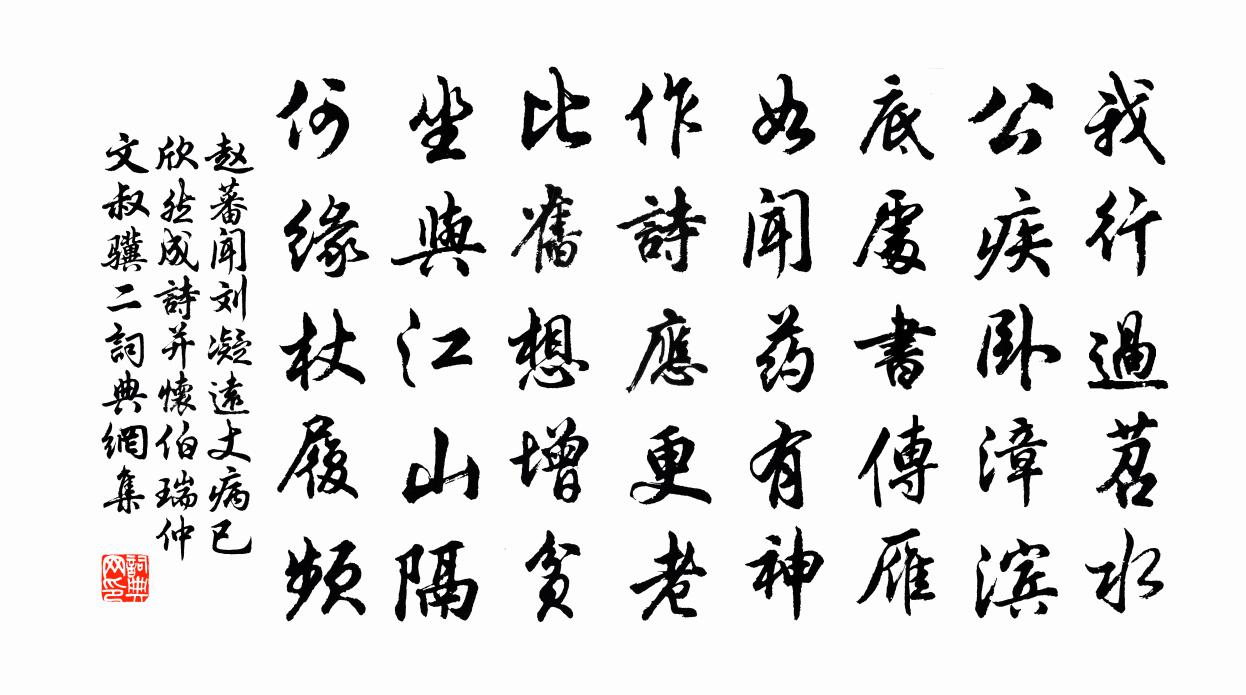 我行過苕水
公疾卧漳滨
底處書傳雁
如聞药有神
作詩應更老
比舊想增貧
坐與江山隔
何缘杖履頻
赵蕃闻刘凝遠丈病已
欣然成詩并懷伯瑞仲
文叔骥二詞典網集
詞典
网印